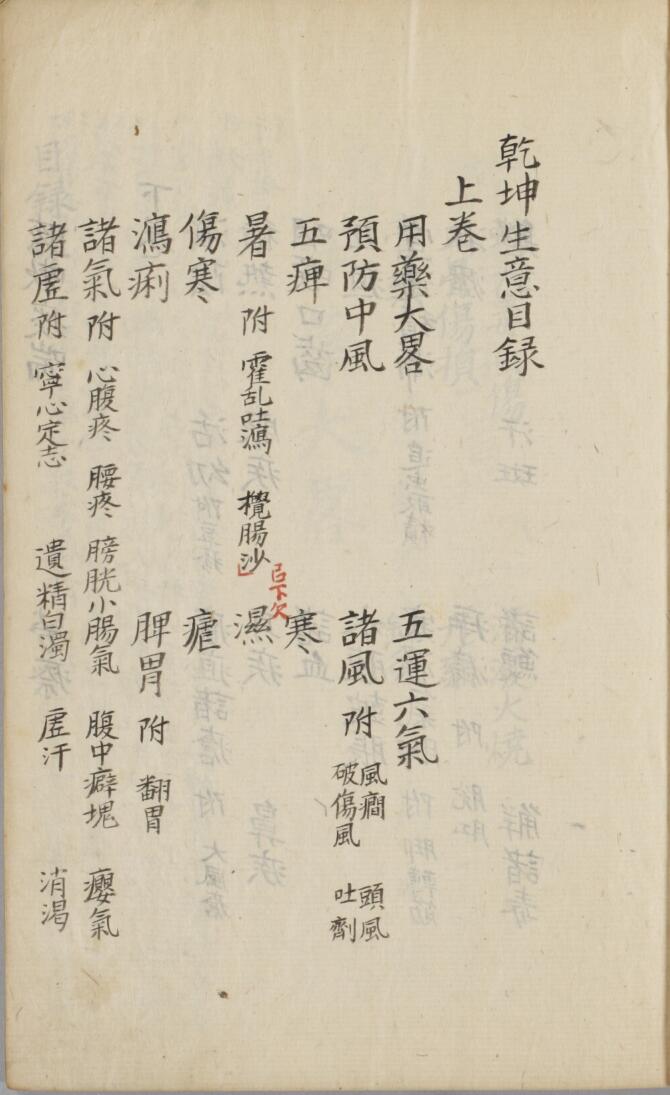 乾坤生意目録
上巻
用藥大畧 五運六氣
預防中風 諸風 附 風癇 頭風 破傷風 吐劑
五痺 寒
暑 附 霍乱吐瀉 攪腸沙 已下欠 濕
傷寒 瘧
瀉痢 脾胃 附 翻胃
諸氣 附 心腹疼 腰疼 膀胱小腸氣 腹中癖塊 癭氣
諸虗 附 寧心定志 遺精白濁 虗汗 消渇